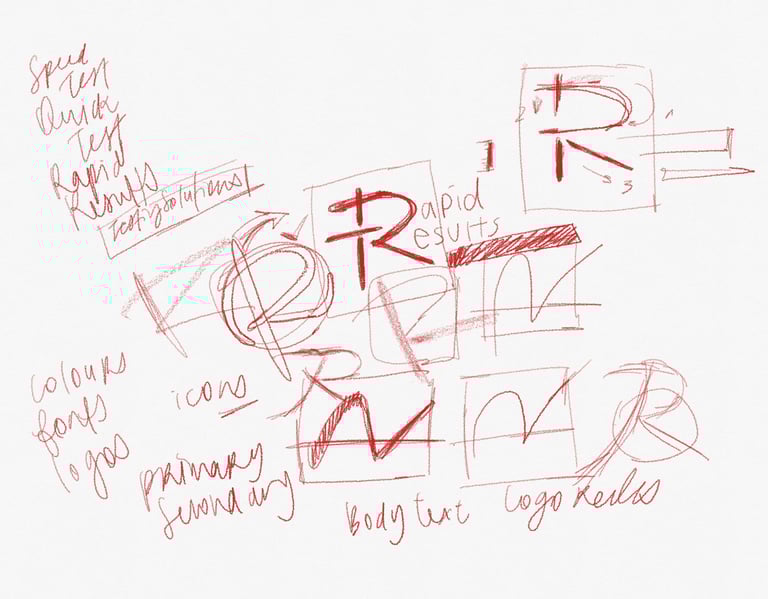 Speed
Test
Quick
Test
Rapid
Results
Testing Solutions
R
1
2
3
Rapid
Results
colours
fonts
logos
icons
primary
Secondary
Body text
Logo